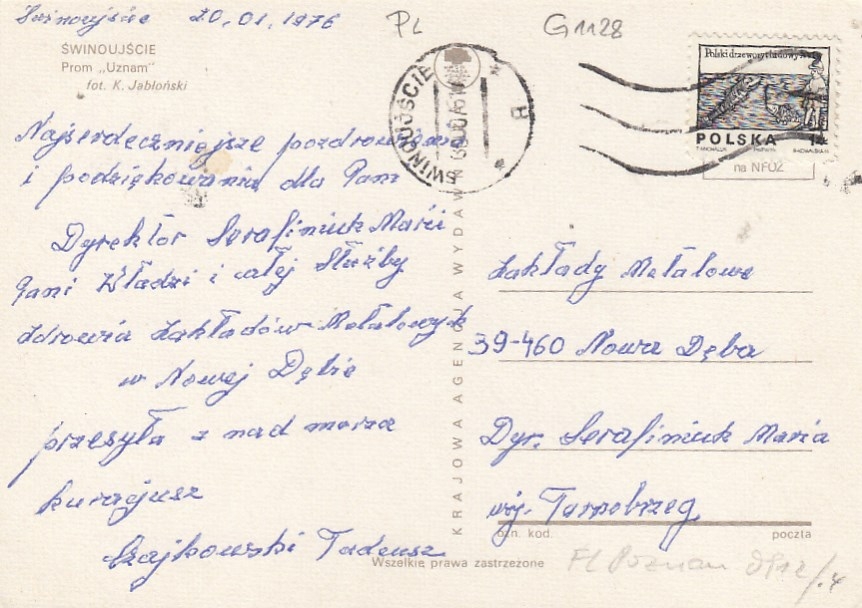 Świnoujście 20,01,1976
PL G1128
ŚWINOUJŚCIE
Prom „Uznam"
fot. K. Jabłoński
ŚWINOUJŚCIE
B
Polski drzeworyt ludowy
POLSKA
na NFOZ
Najserdeczniejsze pozdrowienia
i podziękowania dla Pani
Dyrektór Serafiniuk Marii
Pani Władzi i całej Służby
Zdrowia Zakładów Metalowych
w Nowej Dębie
przesyła z nad morza
kuracjusz
Czajkowski Tadeusz
KRAJOWA AGENCJA WYDAWN
Zakłady Metalowe
39-460 Nowa Dęba
Dyr. Serafiniuk Maria
woj. Tarnobrzeg
ozn. kod. poczta
Wszelkie prawa zastrzeżone
FL Poznan